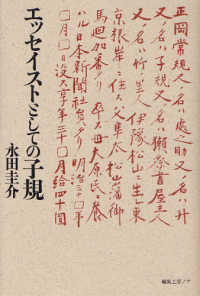 正岡常規又ノ名ハ處之助又ノ名ハ升
又ノ名ハ子規又ノ名ハ獺祭書屋主人
又ノ名ハ竹ノ里人伊豫松山ニ生レ東
京根岸ニ住ス父隼太松山藩御
馬廻加番タリ卒ス母大原氏ニ養
ハル日本新聞社員タリ明治三十□年
□月□日没ス享年三十□月給四十圓
エッセイストとしての子規
永田圭介
編集工房ノア